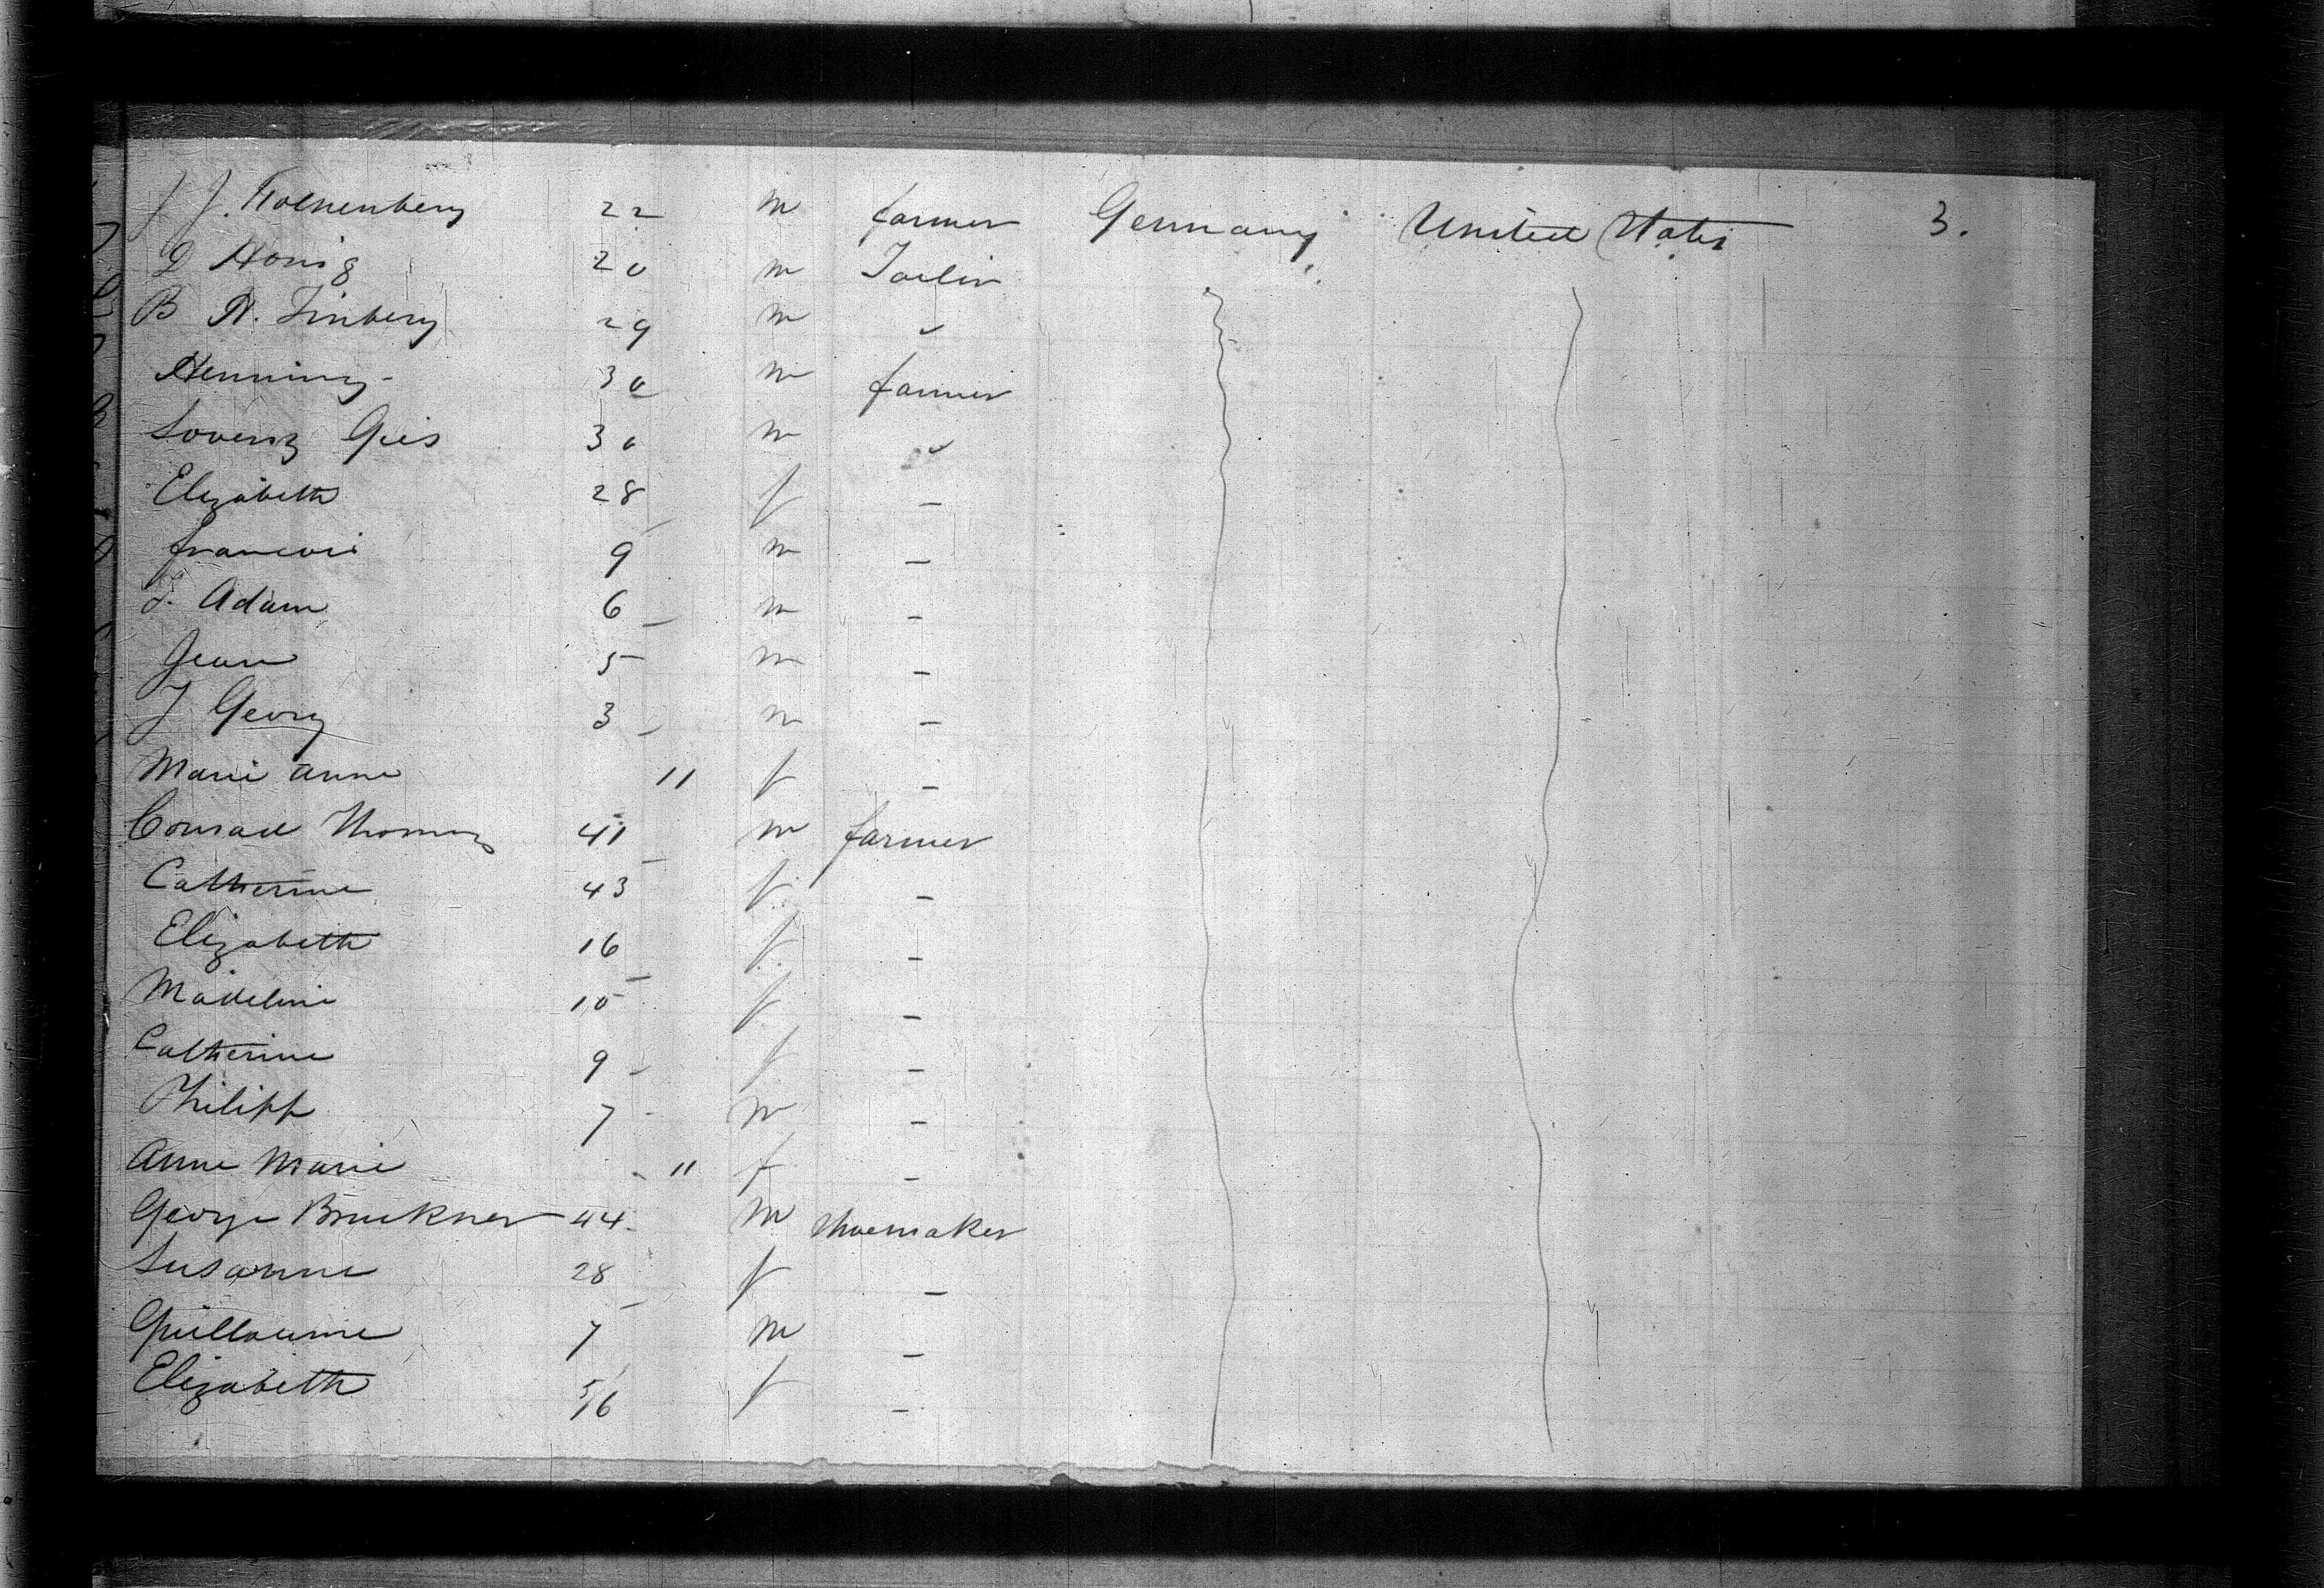 J J. Falkenberg 22 m farmer Germany United States 3.
D Honig 20 m Tailor
B H. Finberg 29 m "
Henning 30 m farmer
Lorenz Geis 30 m "
Elizabeth 28 f –
francois 9 m –
J. Adam 6 m –
Jean 5 m –
J Georg 3 m –
Marie Anne 11 f –
Conrad Thomas 41 m farmer
Catherine 43 f –
Elizabeth 16 f –
Madeline 10 f –
Catherine 9 f –
Philipp 7 m –
Anne Marie 11 f –
George Bruckner 44 m shoemaker
Susanne 28 f –
Guillaume 7 m –
Elizabeth 5/6 f –